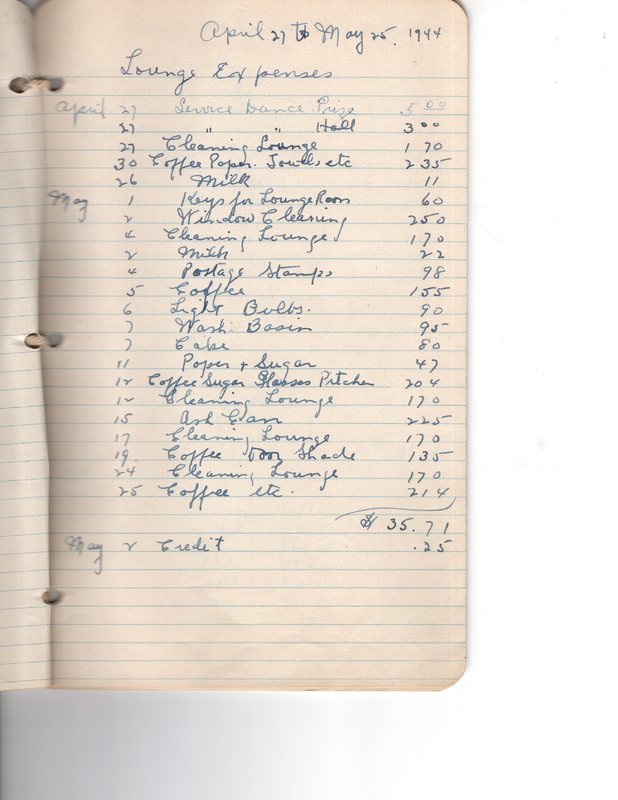 April 27 to May 25. 1944
Lounge Expenses
April 27 Service Dance Prize 5 00
27 " " Hall 3 00
27 Cleaning Lounge 1 70
30 Coffee Paper. Towels etc 2 35
26 Milk 11
May 1 Keys for Lounge Room 60
2 Window Cleaning 2 50
4 Cleaning Lounge 1 70
2 Milk 22
4 Postage Stamps 98
5 Coffee 1 55
6 Light Bulbs. 90
7 Wash Basin 95
7 Cake 80
11 Paper + Sugar 47
12 Coffee Sugar Glasses Pitcher 2 04
12 Cleaning Lounge 1 70
15 Ash Can 2 25
17 Cleaning Lounge 1 70
19. Coffee Door Shade 1 35
24 Cleaning Lounge 1 70
25 Coffee etc. 2 14
$ 35.71
May 2 Credit .25